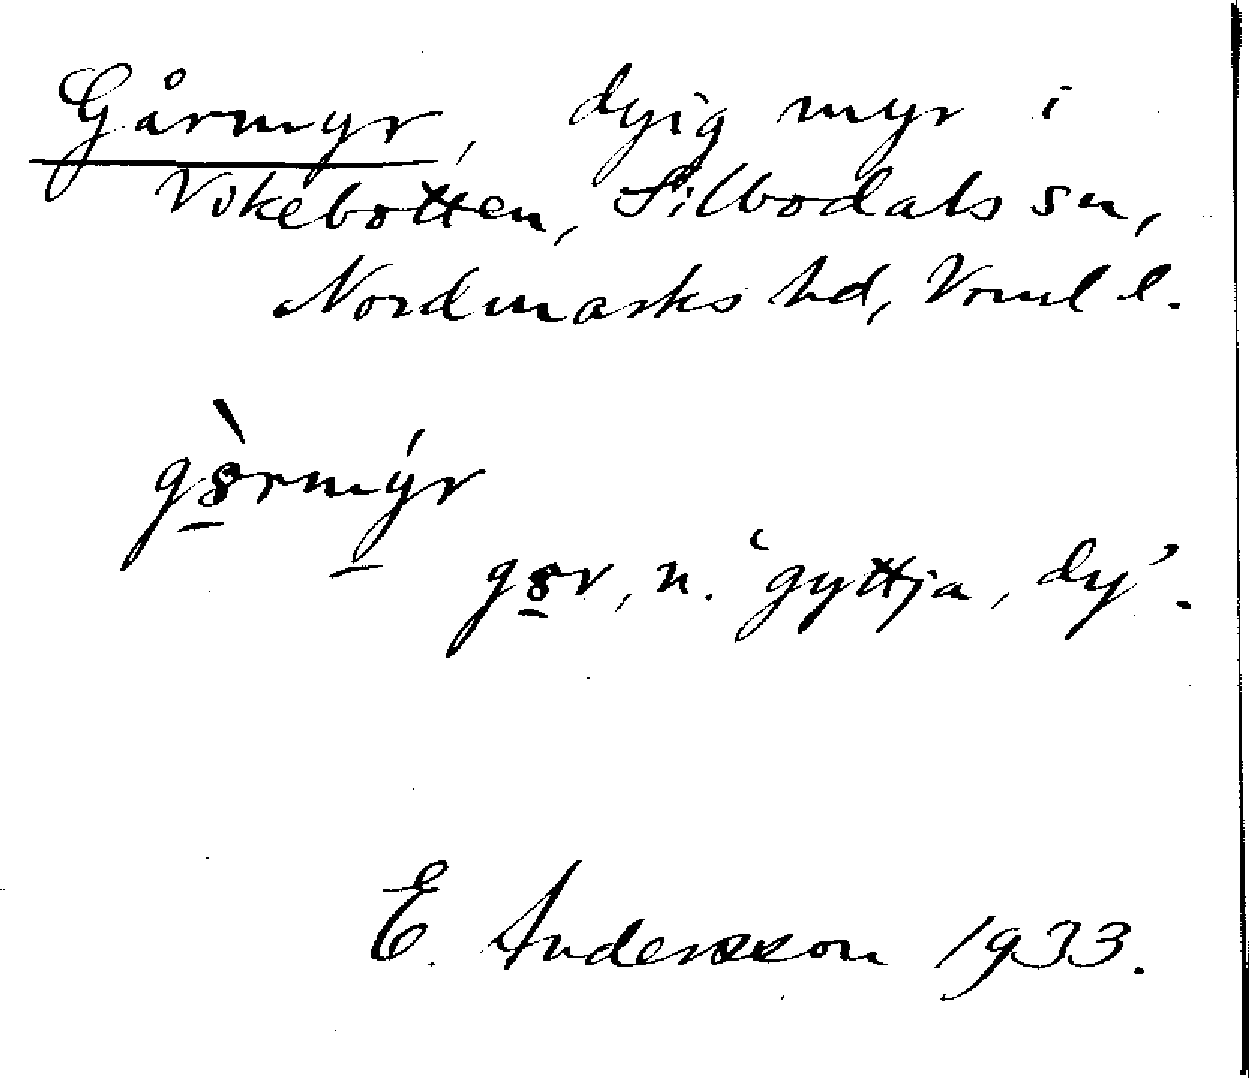 Gårmyr, dyig myr i
Vokebotten, Silbodals sn,
Nordmarks hd, Vrml l.
gòrmýr
gor, n. ‘gyttja, dy’.
E. Andersson 1933.